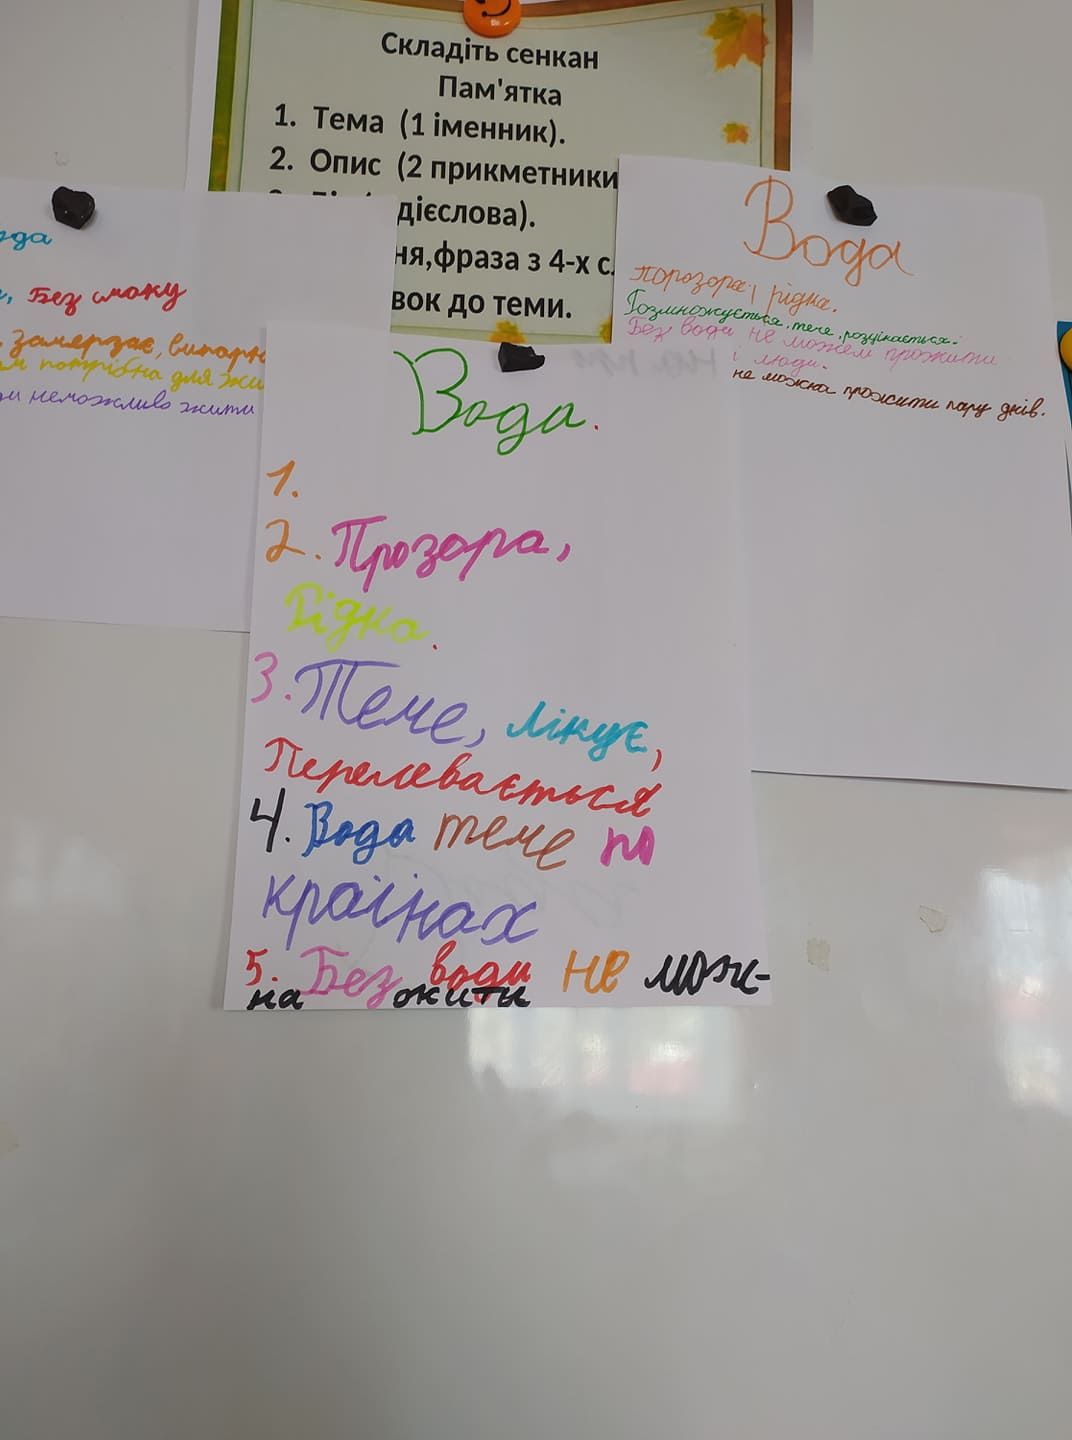 Складіть сенкан
Пам'ятка
1. Тема (1 іменник).
2. Опис (2 прикметники
дієслова).
ня,фраза з 4-х с.
вок до теми.
ода
Без смаку
замерзає, випарн
м потрібна для жи
ди неможливо жити
Вода
порозора, рідка.
Розмножується, тече, розцікається.
Без води не можем прожити
і люди.
не можна прожити пару днів.
Вода.
1.
2. Прозора,
Рідка.
3. Тече, лікує,
Перелевається
4. Вода тече по
країнах
5. Без води не мож-
на жити